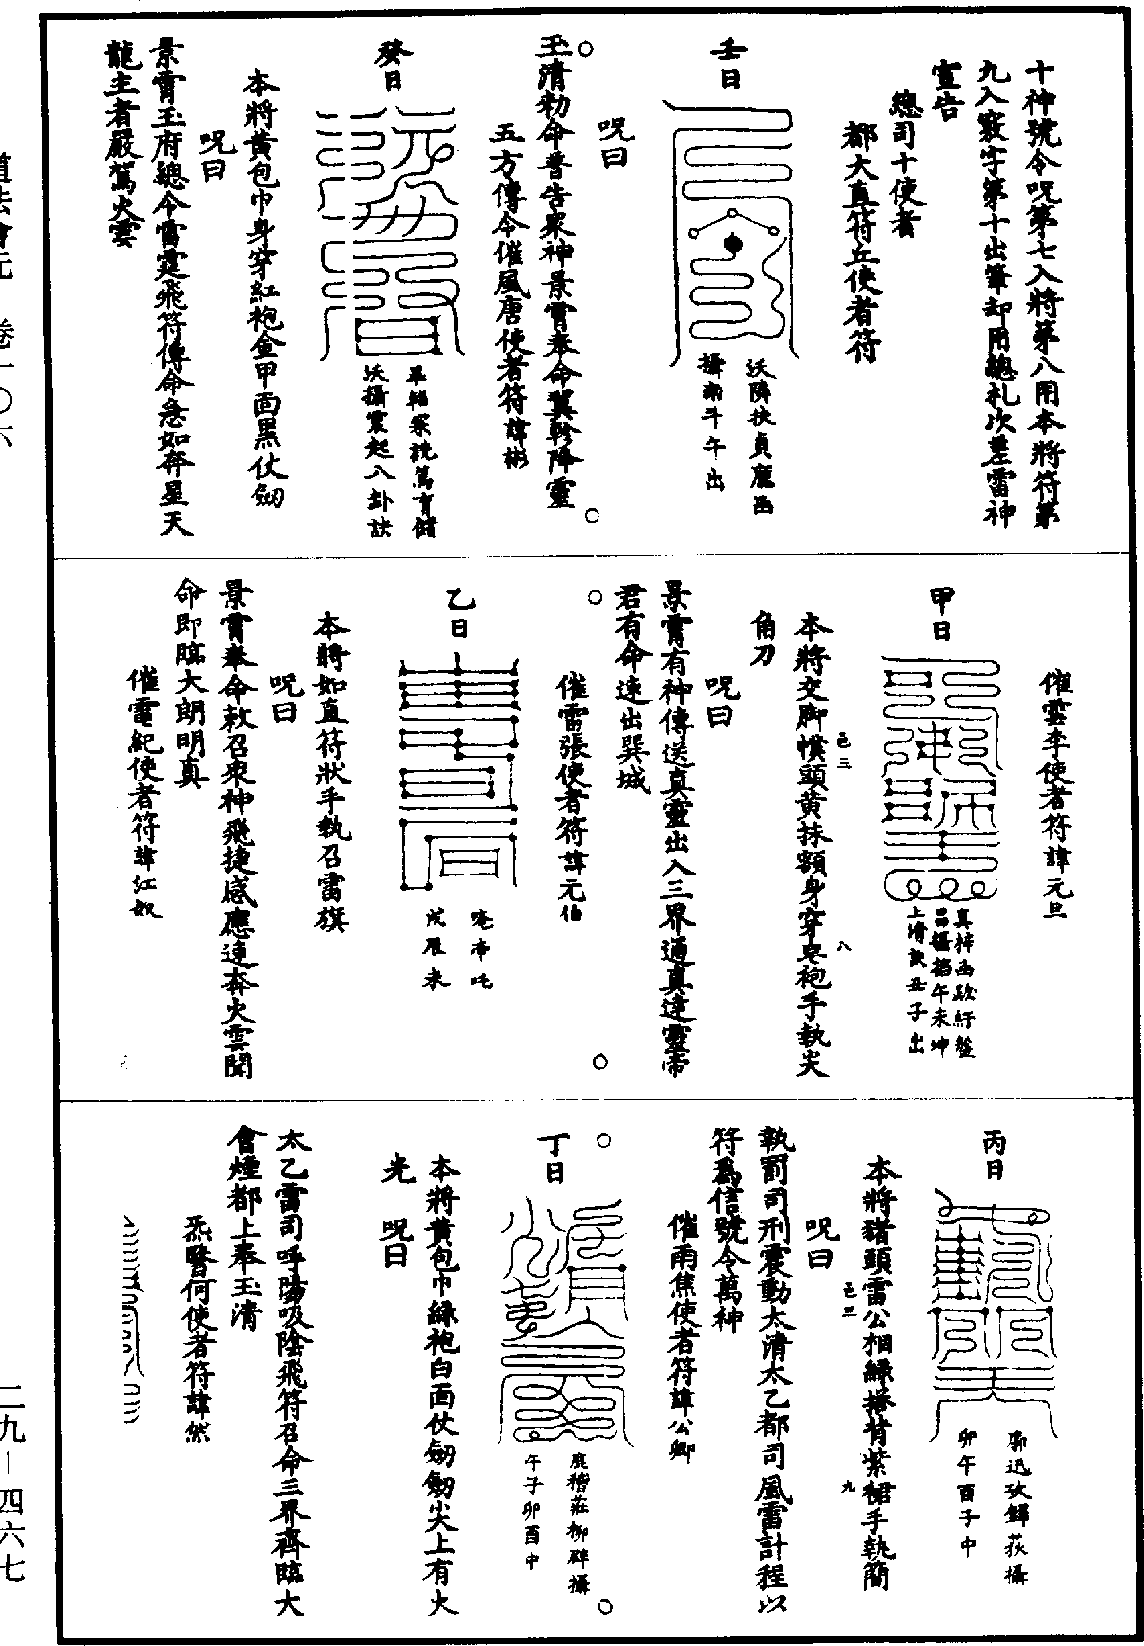 十神號令呪第七入將第八用本將符第
九入竅字第十出筆却用總札次差雷神
宣告
總司十使者
都大直符丘使者符
壬日
沃隣扶貞龐函
攝南斗午出
呪曰
玉清勑命普告衆神景霄奉命翼軫降靈
五方傳令催風唐使者符諱彬
癸日
沃攝震起八卦訣
本將黄包巾身穿紅袍金甲面黑仗劒
呪曰
景霄玉府總令雷霆飛符傳命急如奔星天
龍主者嚴駕火雲
催雲李使者符諱元旦
甲日
上清訣丑子出
本將交脚幞頭黄抹額身穿皂袍手執尖
角刀
呪曰
景霄有神傳送真靈出入三界通真達靈帝
君有命速出巽城
催雷張使者符諱元伯
乙日
本將如直符狀手執召雷旗
呪曰
景霄奉命敕召衆神飛捷感應速奔火雲聞
命即臨大朗明真
催電紀使者符諱江奴
色三
八
丙日
卯午酉子中
本將豬頭雷公相緑捲背紫裙手執簡
呪曰
執罰司刑震動太清太乙都司風雷計程以
符爲信號令萬神
催雨焦使者符諱公卿
色三
九
丁日
午子卯酉中
本將黄包巾緑袍白面仗劒劒尖上有火
光
呪曰
太乙雷司呼陽吸陰飛符召命三界齊臨大
會煙都上奉玉清
炁醫何使者符諱然
道法會元 卷一〇六
二九―四六七